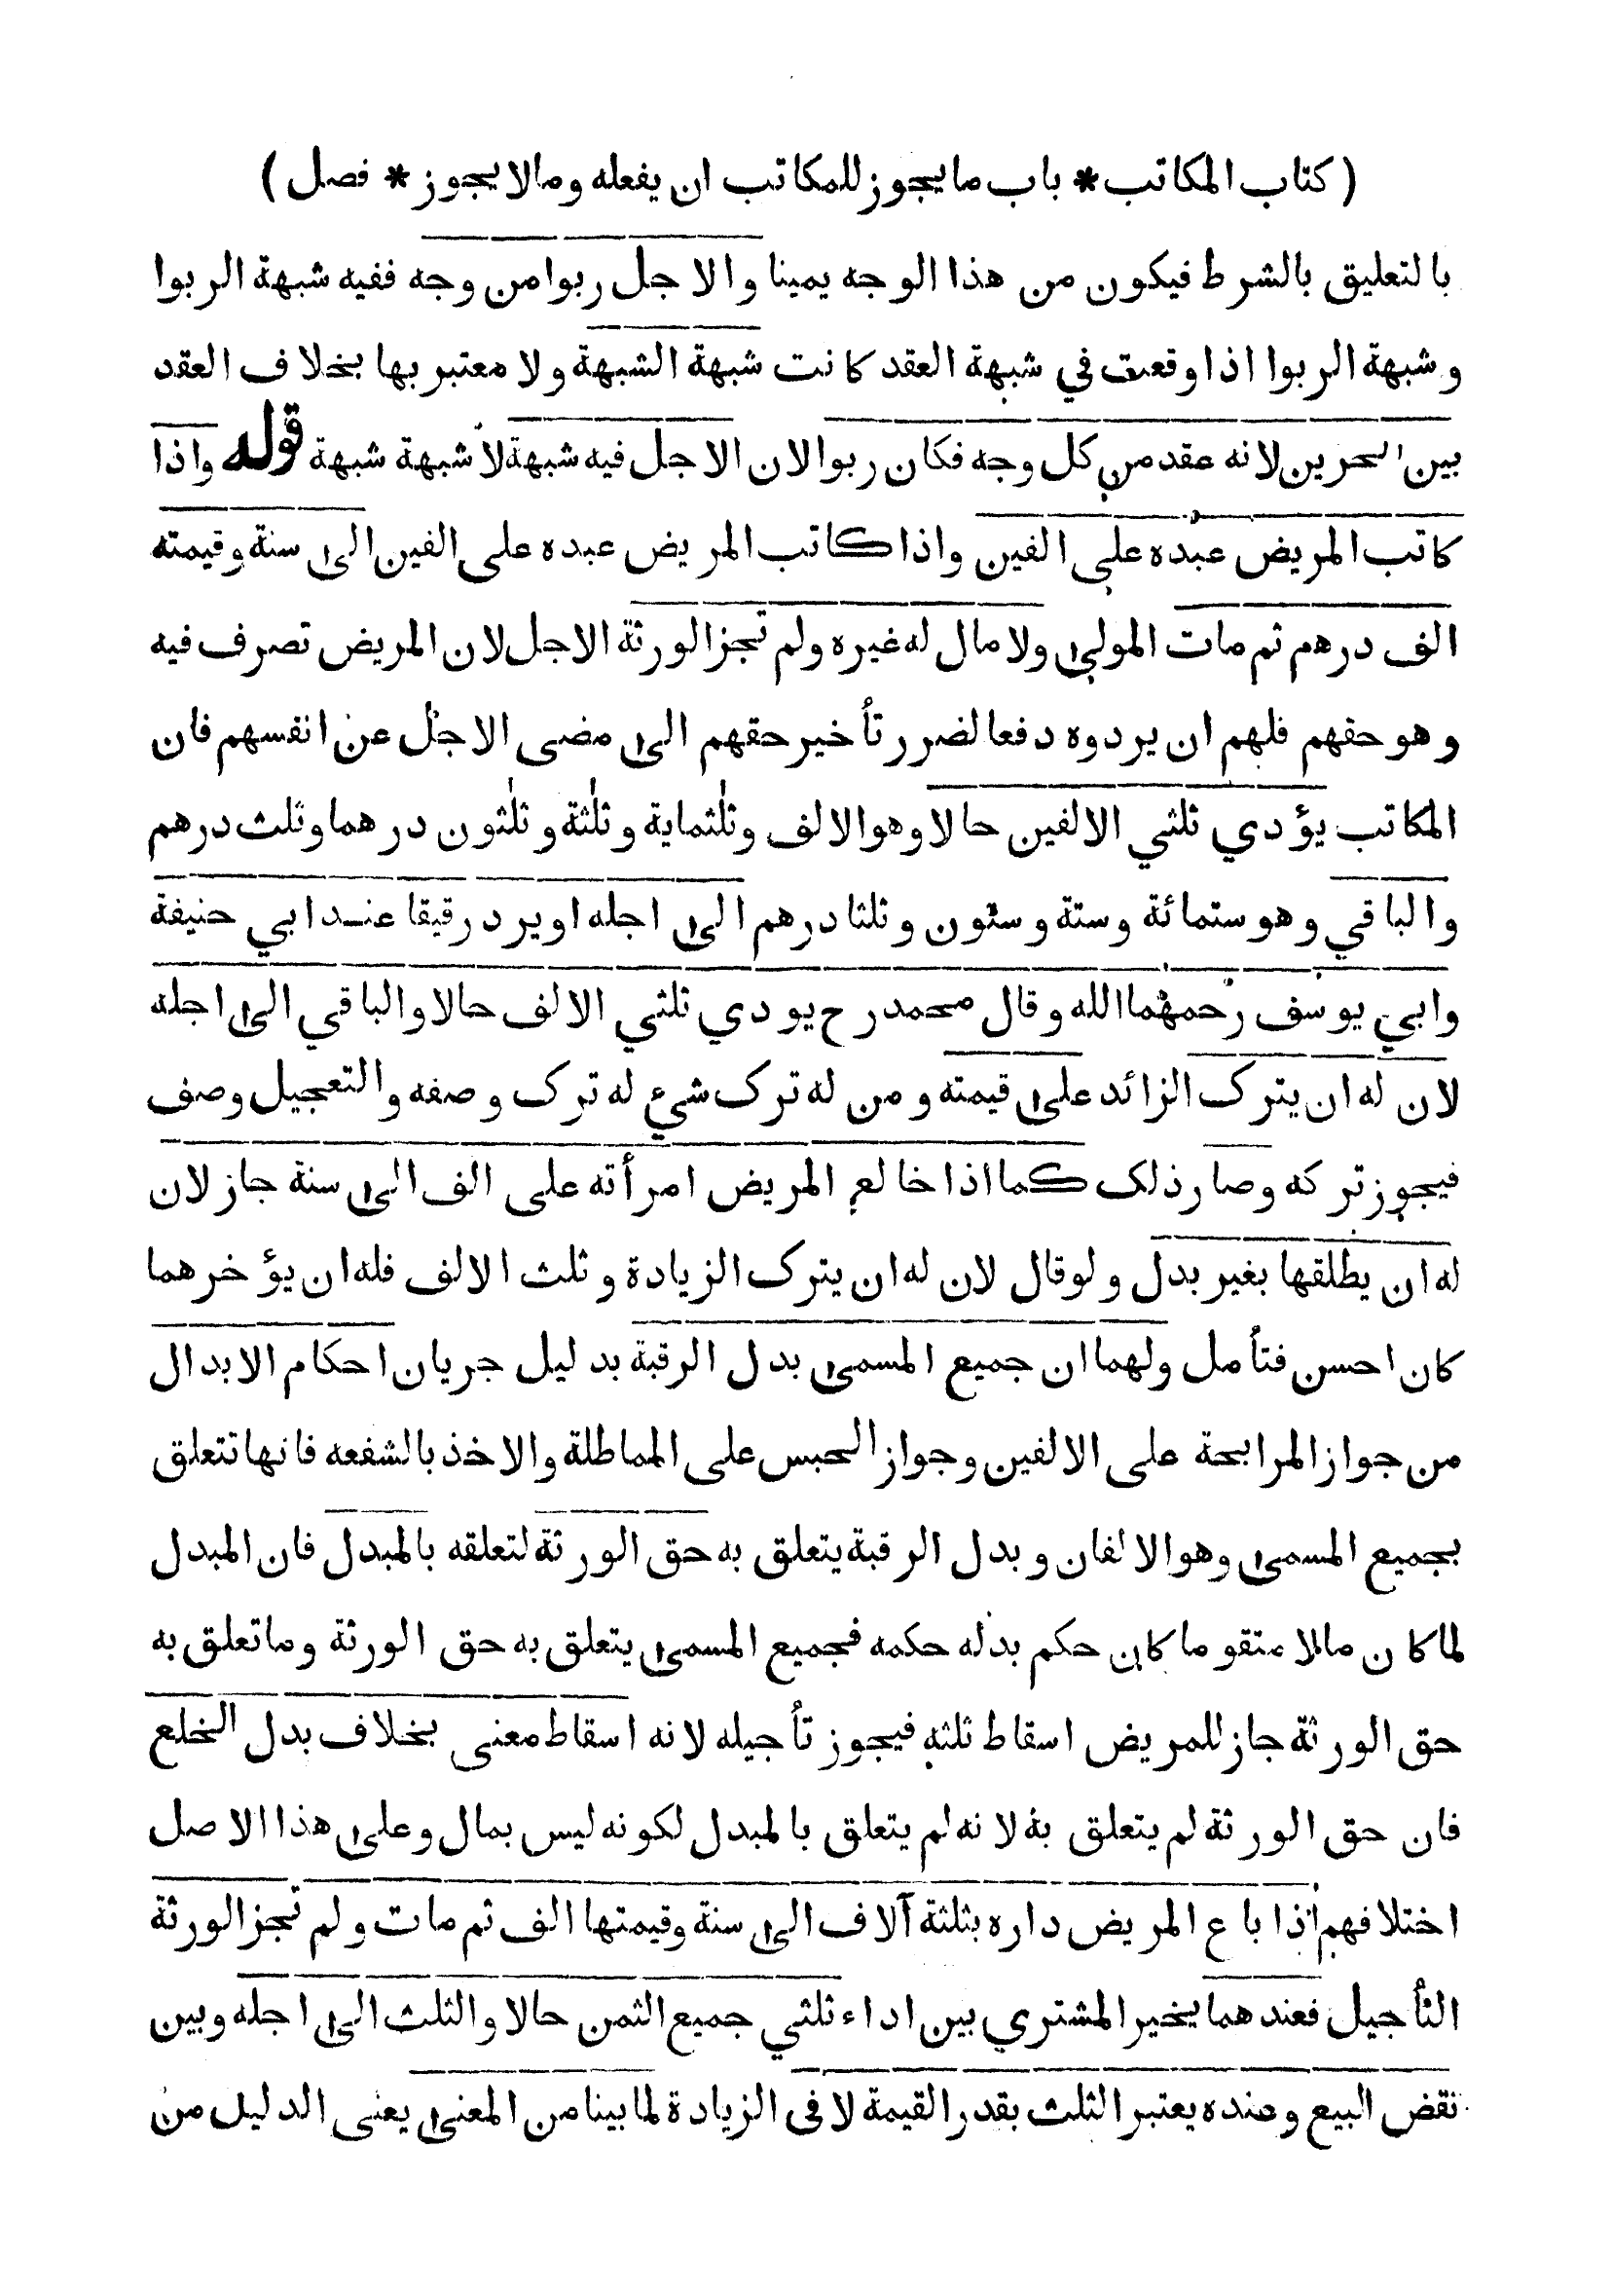 ( كتاب المكاتب * باب ما يجوز للمكاتب ان يفعله وما لا يجوز * فصل )
بالتعليق بالشرط فيكون من هذا الوجه يمينا والاجل ربوا من وجه ففيه شبهة الربوا
وشبهة الربوا اذا وقعت في شبهة العقد كانت شبهة الشبهة ولا معتبر بها بخلاف العقد
بين الحرين لانه عقد من كل وجه فكان ربوا لان الاجل فيه شبهة لا شبهة شبهة قوله واذا
كاتب المريض عبده على الفين واذا كاتب المريض عبده على الفين الى سنة وقيمته
الف درهم ثم مات المولى ولا مال له غيره ولم تجز الورثة الاجل لان المريض تصرف فيه
وهو حقهم فلهم ان يردوه دفعا لضرر تأخير حقهم الى مضى الاجل عن انفسهم فان
المكاتب يؤدي ثلثي الالفين حالا وهو الالف وثلثماية وثلثة وثلثون درهما وثلث درهم
والباقي وهو ستمائة وستة وستون وثلثا درهم الى اجله او يرد رقيقا عند ابي حنيفة
وابي يوسف رحمهما الله وقال محمد رح يودي ثلثي الالف حالا والباقي الى اجله
لان له ان يترك الزائد على قيمته ومن له ترك شيء له ترك وصفه والتعجيل وصف
فيجوز تركه وصار ذلك كما اذا خالع المريض امرأته على الف الى سنة جاز لان
له ان يطلقها بغير بدل ولو قال لان له ان يترك الزيادة وثلث الالف فله ان يؤخرهما
كان احسن فتأمل ولهما ان جميع المسمى بدل الرقبة بدليل جريان احكام الابدال
من جواز المرابحة على الالفين وجواز الحبس على المماطلة والاخذ بالشفعه فانها تتعلق
بجميع المسمى وهو الالفان وبدل الرقبة يتعلق به حق الورثة لتعلقه بالمبدل فان المبدل
لما كان مالا متقوما كان حكم بدله حكمه فجميع المسمى يتعلق به حق الورثة وما تعلق به
حق الورثة جاز للمريض اسقاط ثلثه فيجوز تأجيله لانه اسقاط معنى بخلاف بدل الخلع
فان حق الورثة لم يتعلق به لانه لم يتعلق بالمبدل لكونه ليس بمال وعلى هذا الاصل
اختلافهم اذا باع المريض داره بثلثة آلاف الى سنة وقيمتها الف ثم مات ولم تجز الورثة
التأجيل فعندهما يخير المشتري بين اداء ثلثي جميع الثمن حالا والثلث الى اجله وبين
نقض البيع وعنده يعتبر الثلث بقدر القيمة لا فى الزيادة لما بينا من المعنى يعنى الدليل من